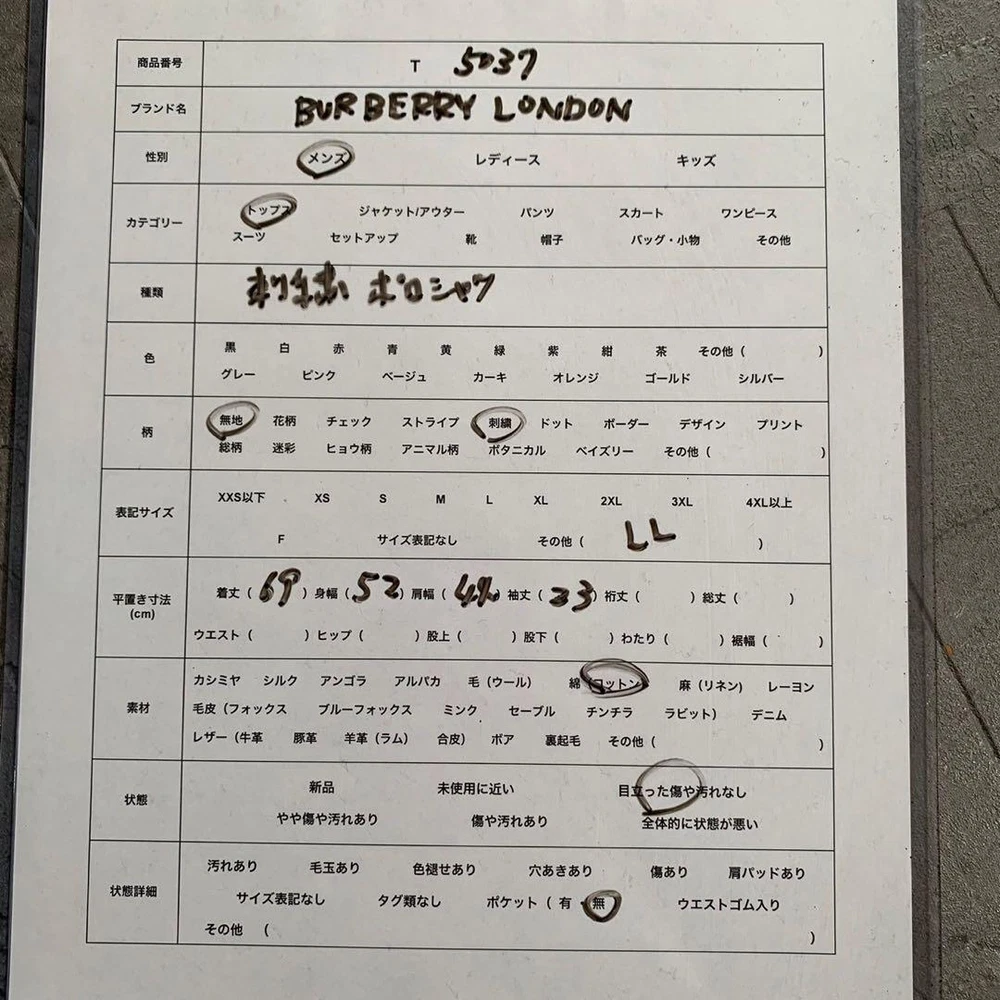 商品番号 T 5037
ブランド名 BURBERRY LONDON
性別 メンズ レディース キッズ
カテゴリー トップス ジャケット/アウター パンツ スカート ワンピース
スーツ セットアップ 靴 帽子 バッグ・小物 その他
種類 刺繍 ポロシャツ
色 黒 白 赤 青 黄 緑 紫 紺 茶 その他 ( )
グレー ピンク ベージュ カーキ オレンジ ゴールド シルバー
柄 無地 花柄 チェック ストライプ 刺繍 ドット ボーダー デザイン プリント
総柄 迷彩 ヒョウ柄 アニマル柄 ボタニカル ペイズリー その他 ( )
表記サイズ XXS以下 XS S M L XL 2XL 3XL 4XL以上
F サイズ表記なし その他 ( LL )
平置き寸法 (cm) 着丈 ( 69 ) 身幅 ( 52 ) 肩幅 ( ) 袖丈 ( 23 ) 裄丈 ( ) 総丈 ( )
ウエスト ( ) ヒップ ( ) 股上 ( ) 股下 ( ) わたり ( ) 裾幅 ( )
素材 カシミヤ シルク アンゴラ アルパカ 毛 (ウール) 綿 (コットン) 麻 (リネン) レーヨン
毛皮 (フォックス ブルーフォックス ミンク セーブル チンチラ ラビット) デニム
レザー (牛革 豚革 羊革 (ラム) 合皮) ボア 裏起毛 その他 ( )
状態 新品 未使用に近い 目立った傷や汚れなし
やや傷や汚れあり 傷や汚れあり 全体的に状態が悪い
状態詳細 汚れあり 毛玉あり 色褪せあり 穴あきあり 傷あり 肩パッドあり
サイズ表記なし タグ類なし ポケット ( 有 ・ 無 ) ウエストゴム入り
その他 ( )